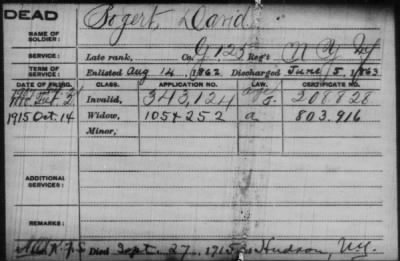 DEAD Bogert, David
NAME OF SOLDIER:
SERVICE: Late rank, Co. G, 125 Reg't N Y Inf
TERM OF SERVICE: Enlisted Aug 14, 1862 Discharged June 5, 1863
DATE OF FILING. CLASS. APPLICATION NO. LAW. CERTIFICATE NO.
Invalid, 343,124 208828
1915 Oct. 14 Widow, 1054252 a 803.916
Minor,
ADDITIONAL SERVICES:
REMARKS:
Died Sept. 27, 1915, Hudson, N.Y.